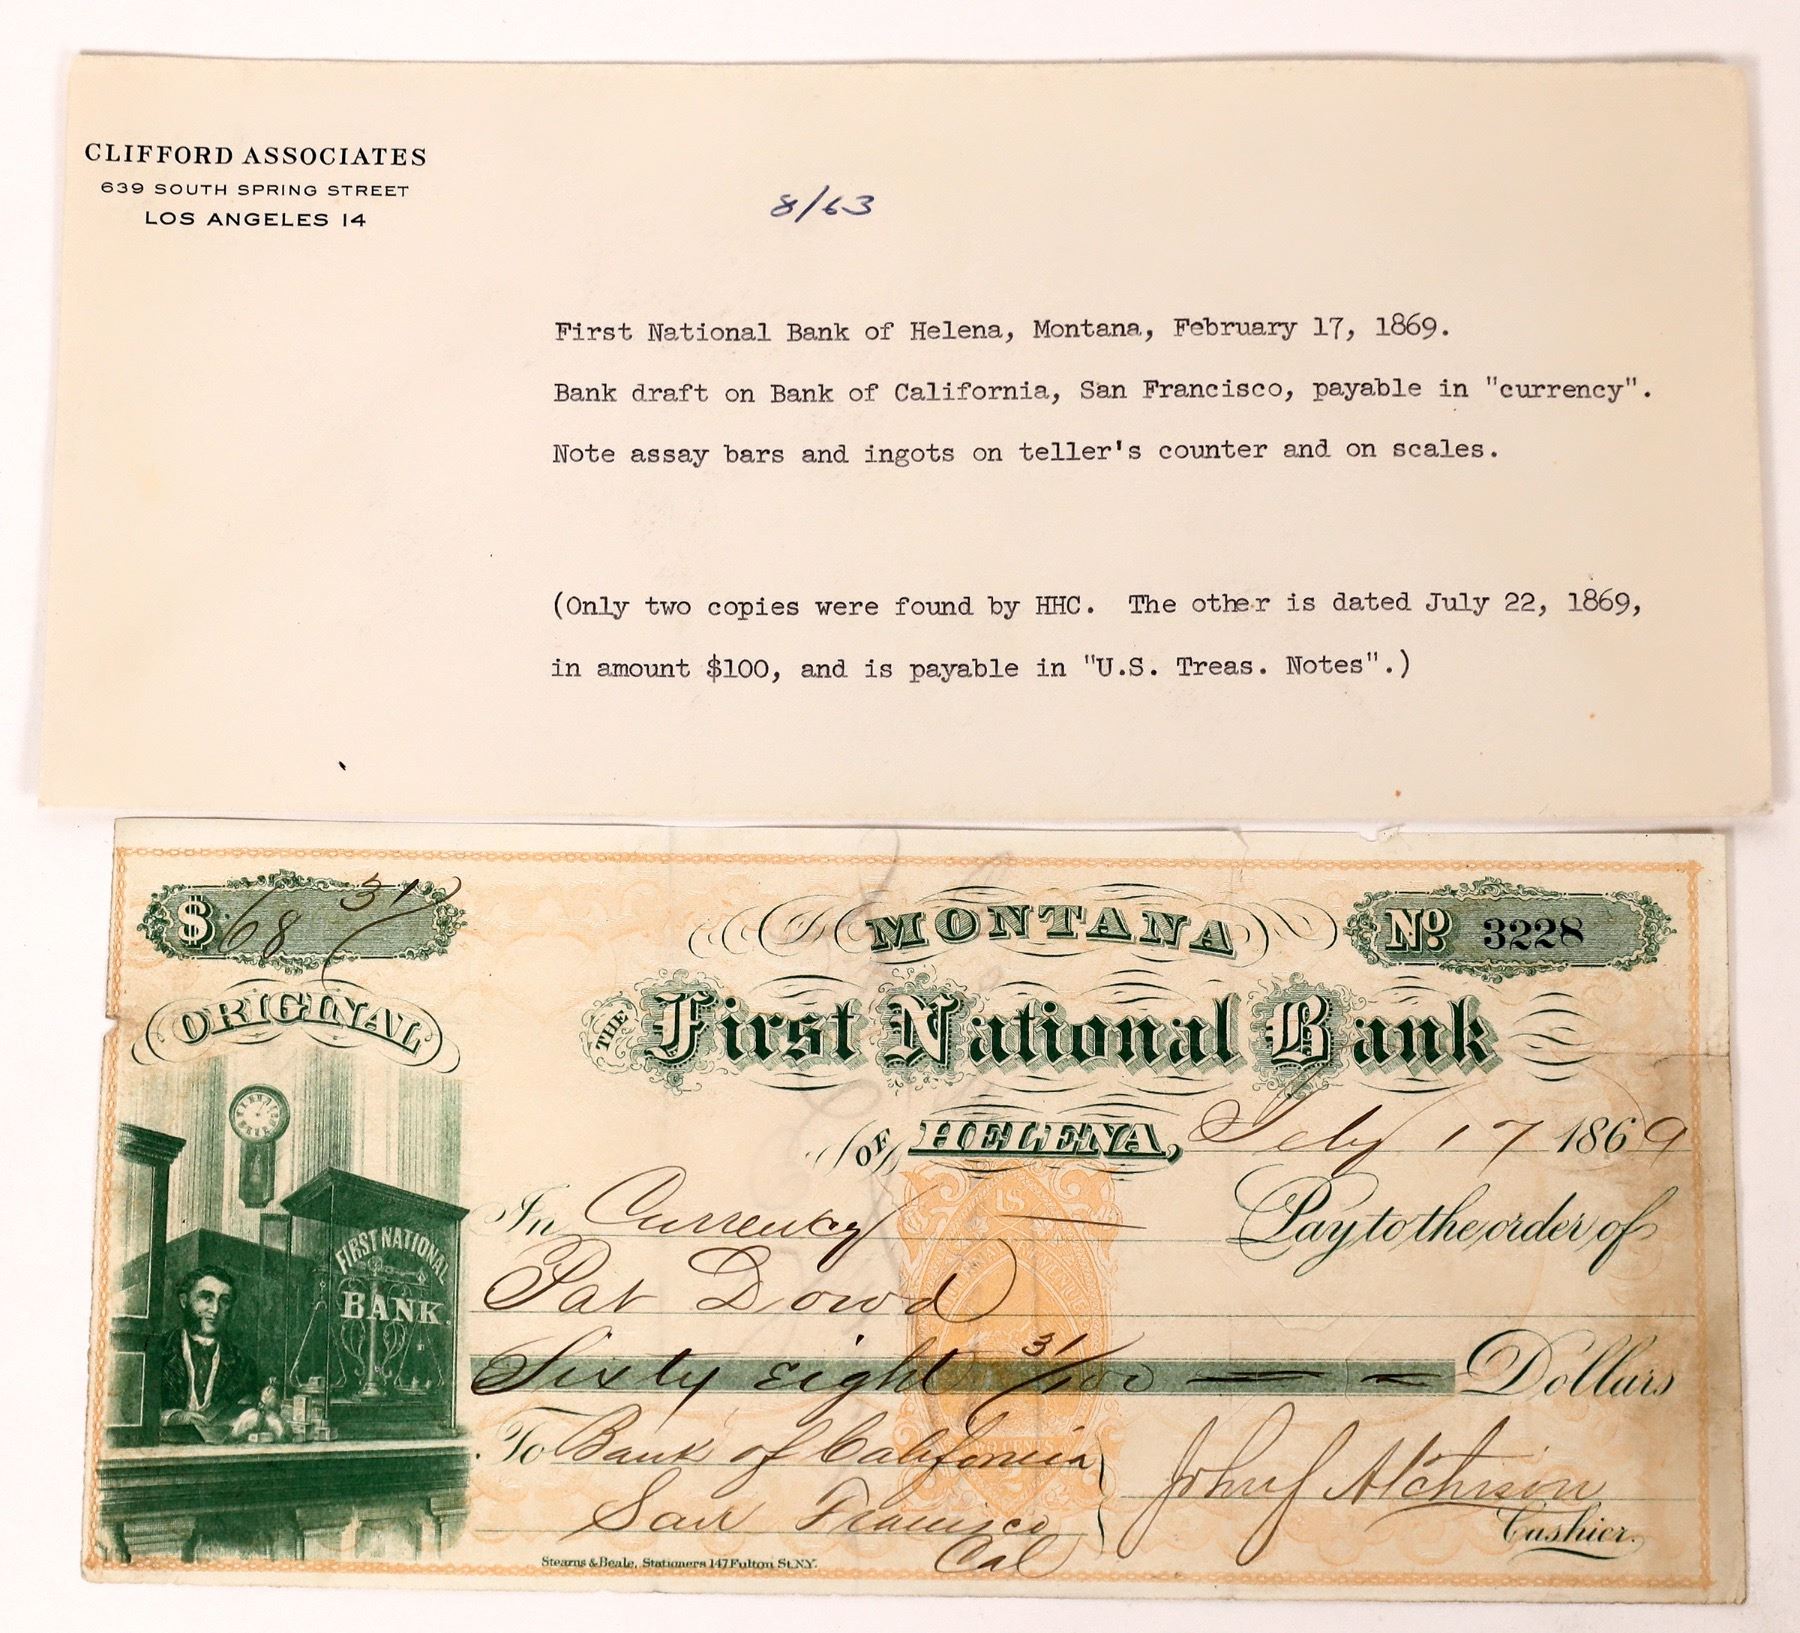 CLIFFORD ASSOCIATES
639 SOUTH SPRING STREET
LOS ANGELES 14
8/63
First National Bank of Helena, Montana, February 17, 1869.
Bank draft on Bank of California, San Francisco, payable in "currency".
Note assay bars and ingots on teller's counter and on scales.
(Only two copies were found by HHC. The other is dated July 22, 1869,
in amount $100, and is payable in "U.S. Treas. Notes".)
$ 68 31/
MONTANA
No 3228
ORIGINAL
THE First National Bank
OF HELENA, Feby 17 1869
In Currency Pay to the order of
Pat Dowd
Sixty Eight 31/100 Dollars
To Bank of California
San Francisco
Cal
John Atchison
Cashier.
FIRST NATIONAL
BANK.
Stearns & Beale, Stationers 147 Fulton St. N.Y.